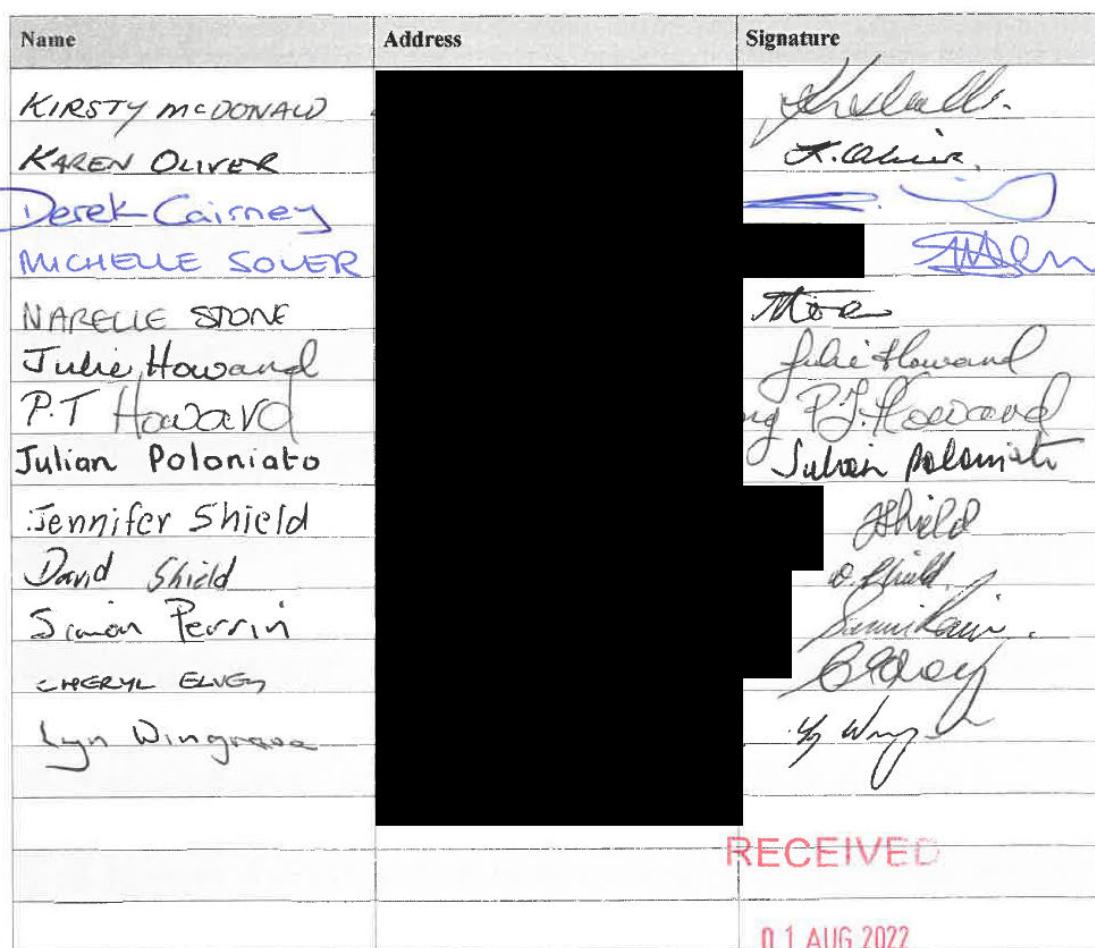 Name Address Signature
KIRSTY McDONALD
KAREN OLIVER K. Oliver.
Derek Cairney
MICHELLE SOLER
NARELLE STONE
Julie Howard Julie Howard
P.T Howard P.T. Howard
Julian Poloniato Julian Poloniato
Jennifer Shield JShield
David Shield D. Shield.
Simon Perrin
CHERYL ELVEY CElvey
Lyn Wingrave
RECEIVED
01 AUG 2022